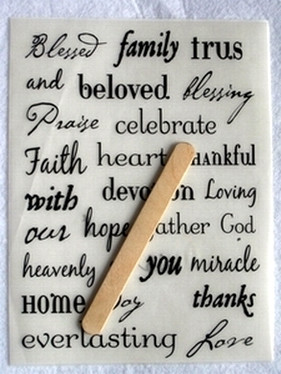 Blessed family trus
and beloved blessing
Praise celebrate
Faith heart thankful
with devotion Loving
our hope gather God
heavenly you miracle
HOME Joy thanks
everlasting Love